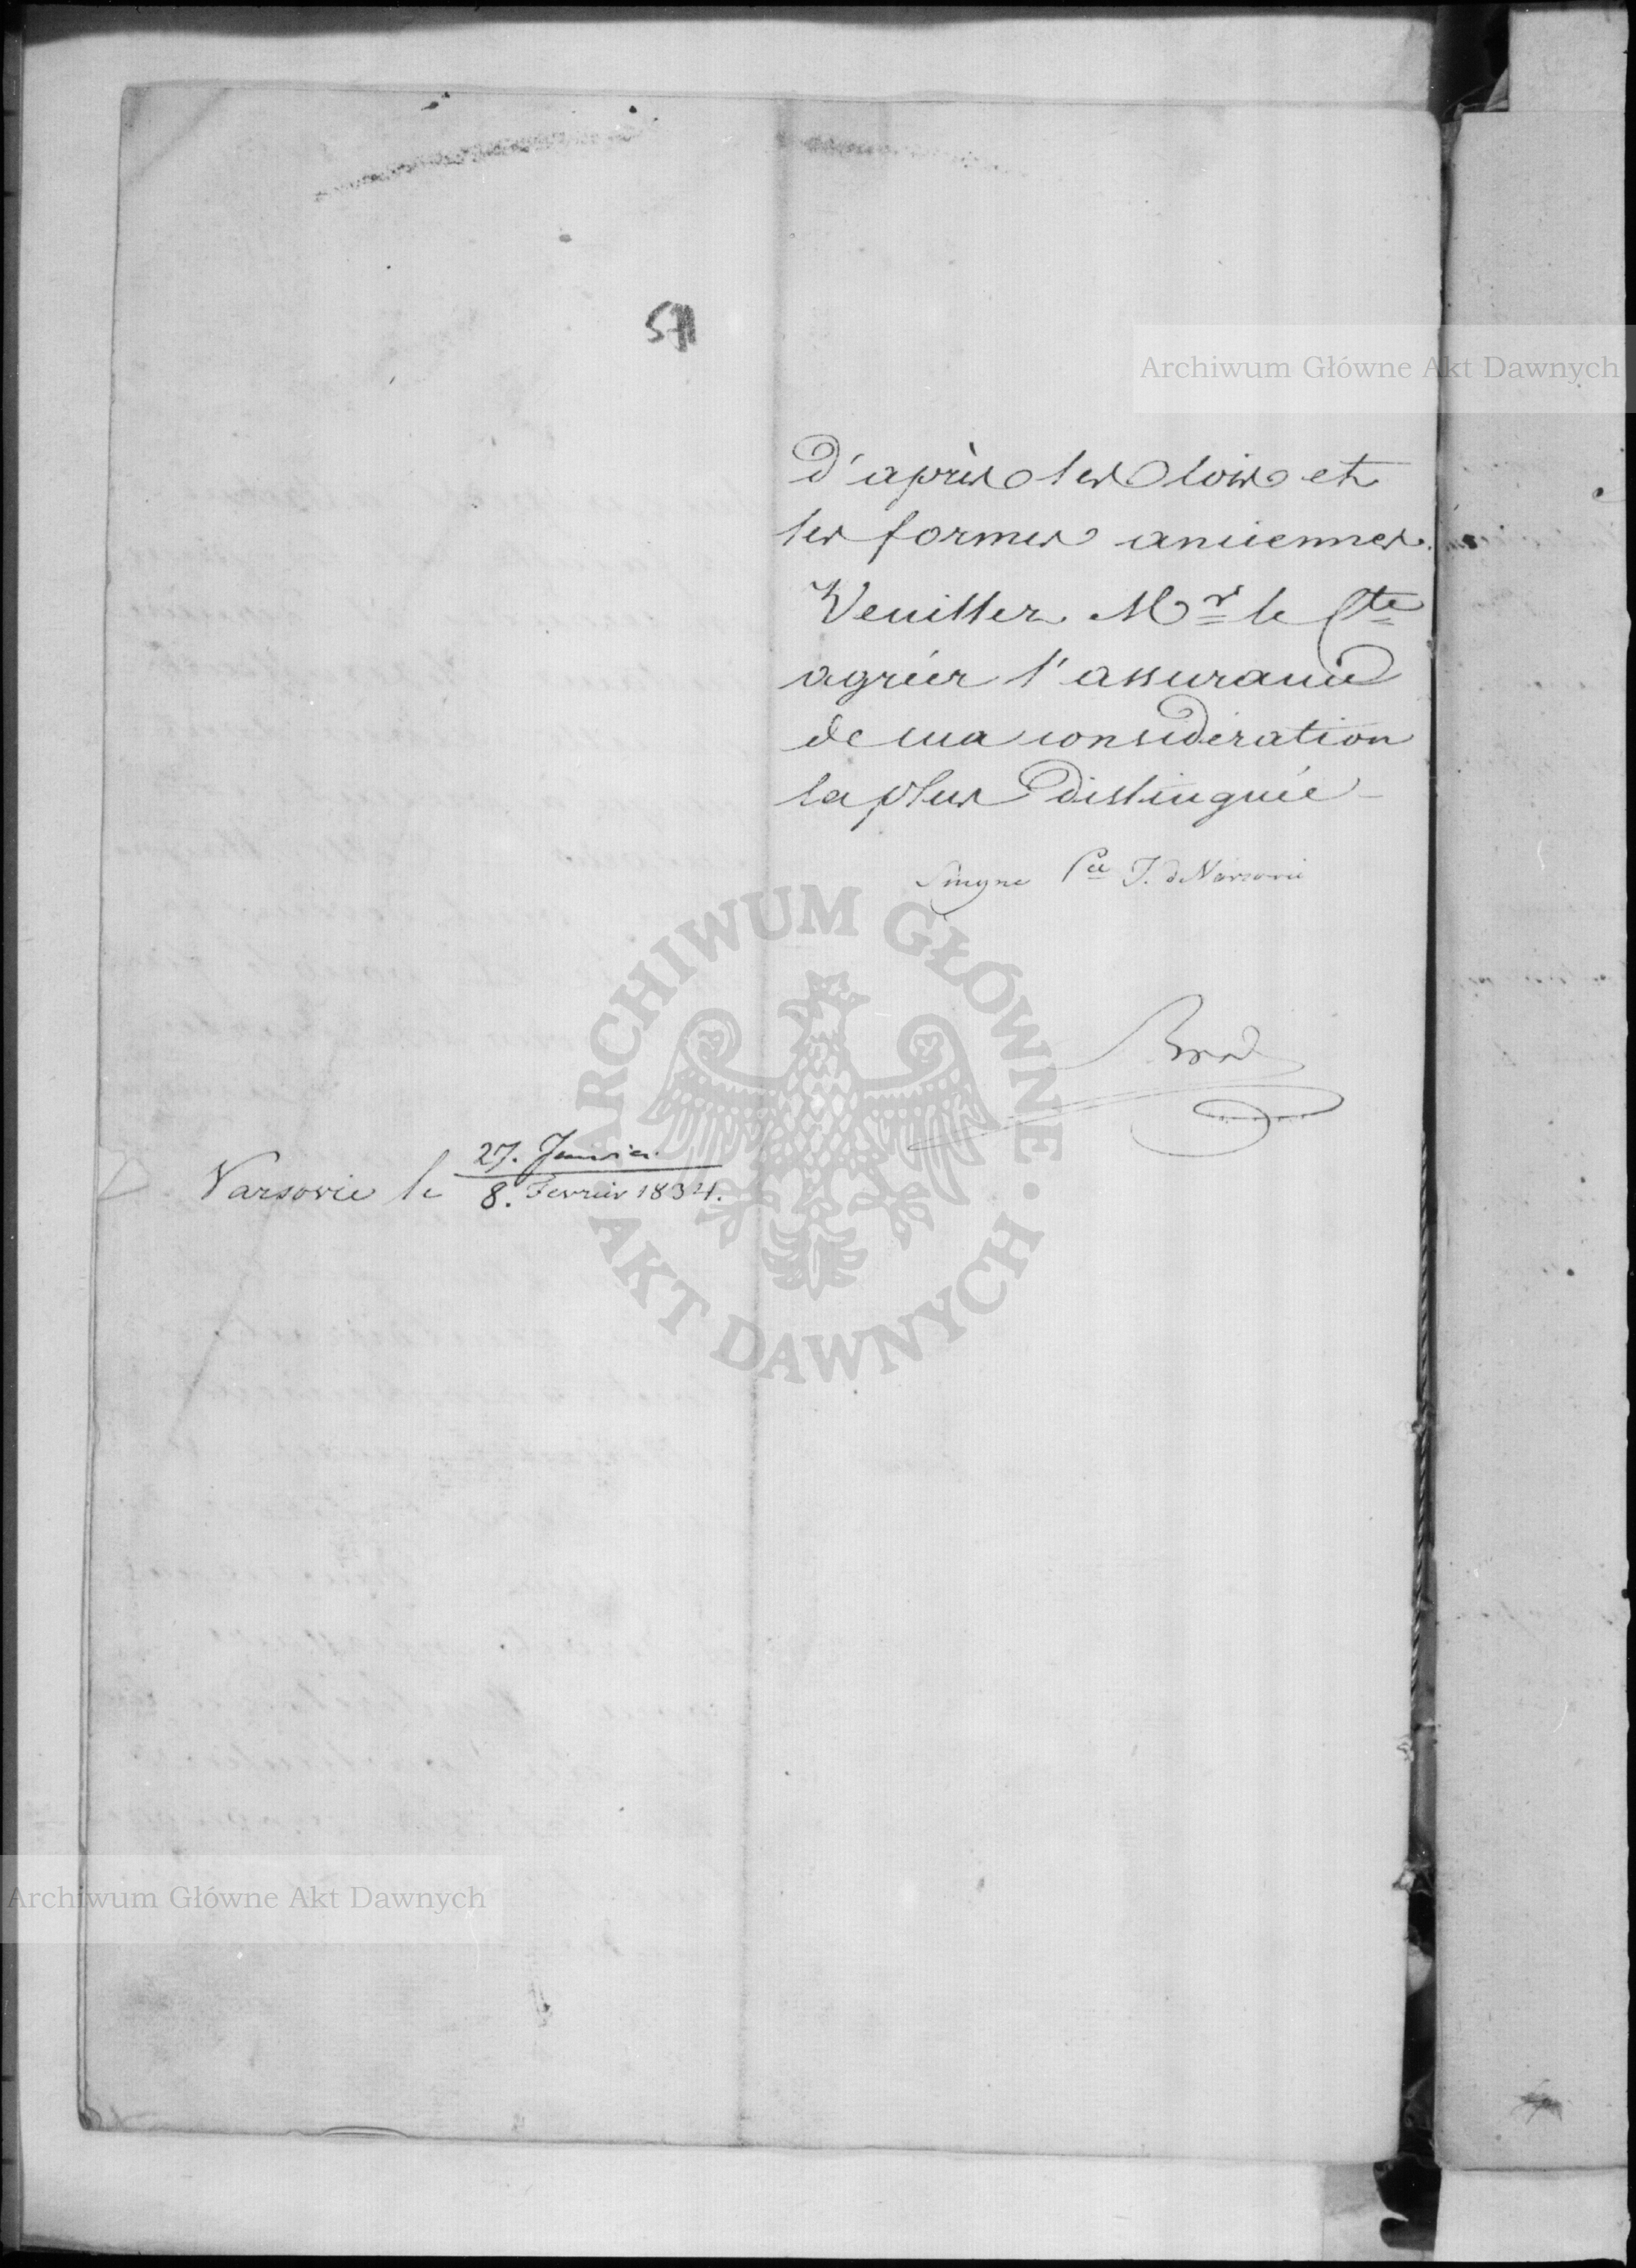 571
Archiwum Główne Akt Dawnych
d'après les lois et
les formes anciennes.
Veuillez Mr le Cte
agréer l'assurance
de ma considération
la plus distinguée
Pce de Varsovie
ARCHIWUM GŁÓWNE
AKT DAWNYCH
Varsovie le 27. Janvier
8. Fevrier 1834.
Archiwum Główne Akt Dawnych